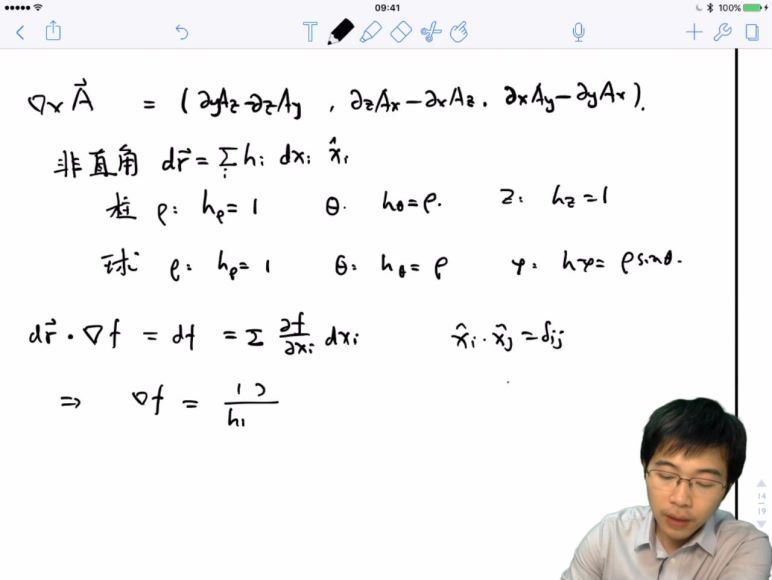 09:41
100%
∇×A⃗ = (∂yAz-∂zAy , ∂zAx-∂xAz, ∂xAy-∂yAx).
非直角 dr⃗ = Σᵢ hᵢ dxᵢ x̂ᵢ
柱 ρ: hρ=1 θ. hθ=ρ. z: hz=1
球 ρ: hρ=1 θ: hθ=ρ φ: hφ=ρsinθ.
dr⃗·∇f = df = Σ ∂f/∂xᵢ dxᵢ x̂ᵢ·x̂ⱼ=δᵢⱼ
⇒ ∇f = 1 ∂/h₁
14
19